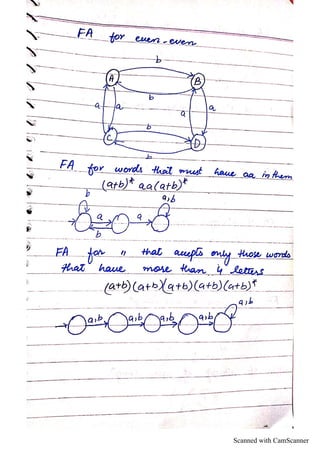 FA for even-even
b
A B
b
a a a a
b
C D
b
FA for words that must have aa in them
(a+b)* aa(a+b)*
b a,b
a a
b
FA for " that accepts only those words
that have more than 4 letters
(a+b)(a+b)(a+b)(a+b)(a+b)*
a,b
a,b a,b a,b a,b
Scanned with CamScanner